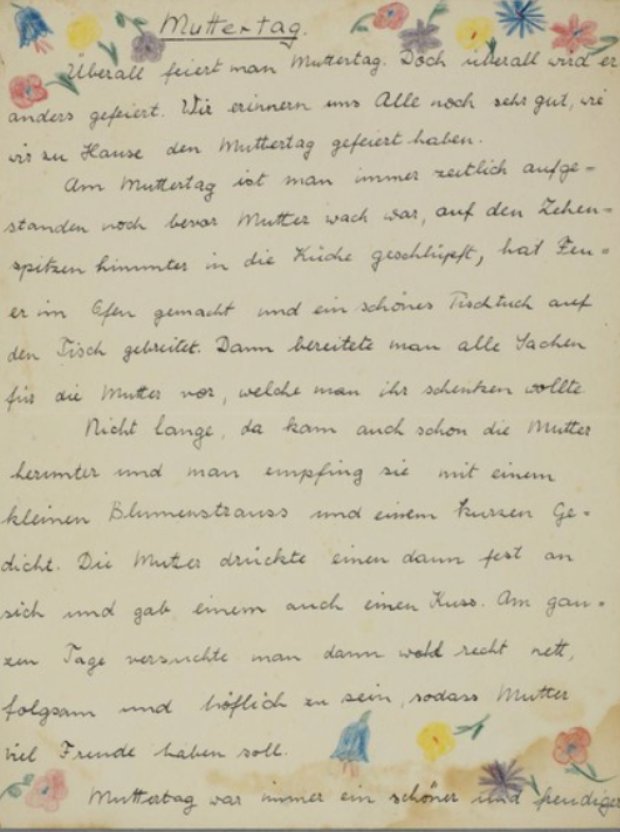 Muttertag.
Überall feiert man Muttertag. Doch überall wird er
anders gefeiert. Wir erinnern uns Alle noch sehr gut, wie
wir zu Hause den Muttertag gefeiert haben.
Am Muttertag ist man immer zeitlich aufge=
standen noch bevor Mutter wach war, auf den Zehen=
spitzen hinunter in die Küche geschlüpft, hat Feu=
er im Ofen gemacht und ein schönes Tischtuch auf
den Tisch gebreitet. Dann bereitete man alle Sachen
für die Mutter vor, welche man ihr schenken wollte.
Nicht lange, da kam auch schon die Mutter
herunter und man empfing sie mit einem
kleinen Blumenstrauss und einem kurzen Ge=
dicht. Die Mutter drückte einen dann fest an
sich und gab einem auch einen Kuss. Am gan=
zen Tage versuchte man dann wohl recht nett,
folgsam und höflich zu sein, sodass Mutter
viel Freude haben soll.
Muttertag war immer ein schöner und freudiger